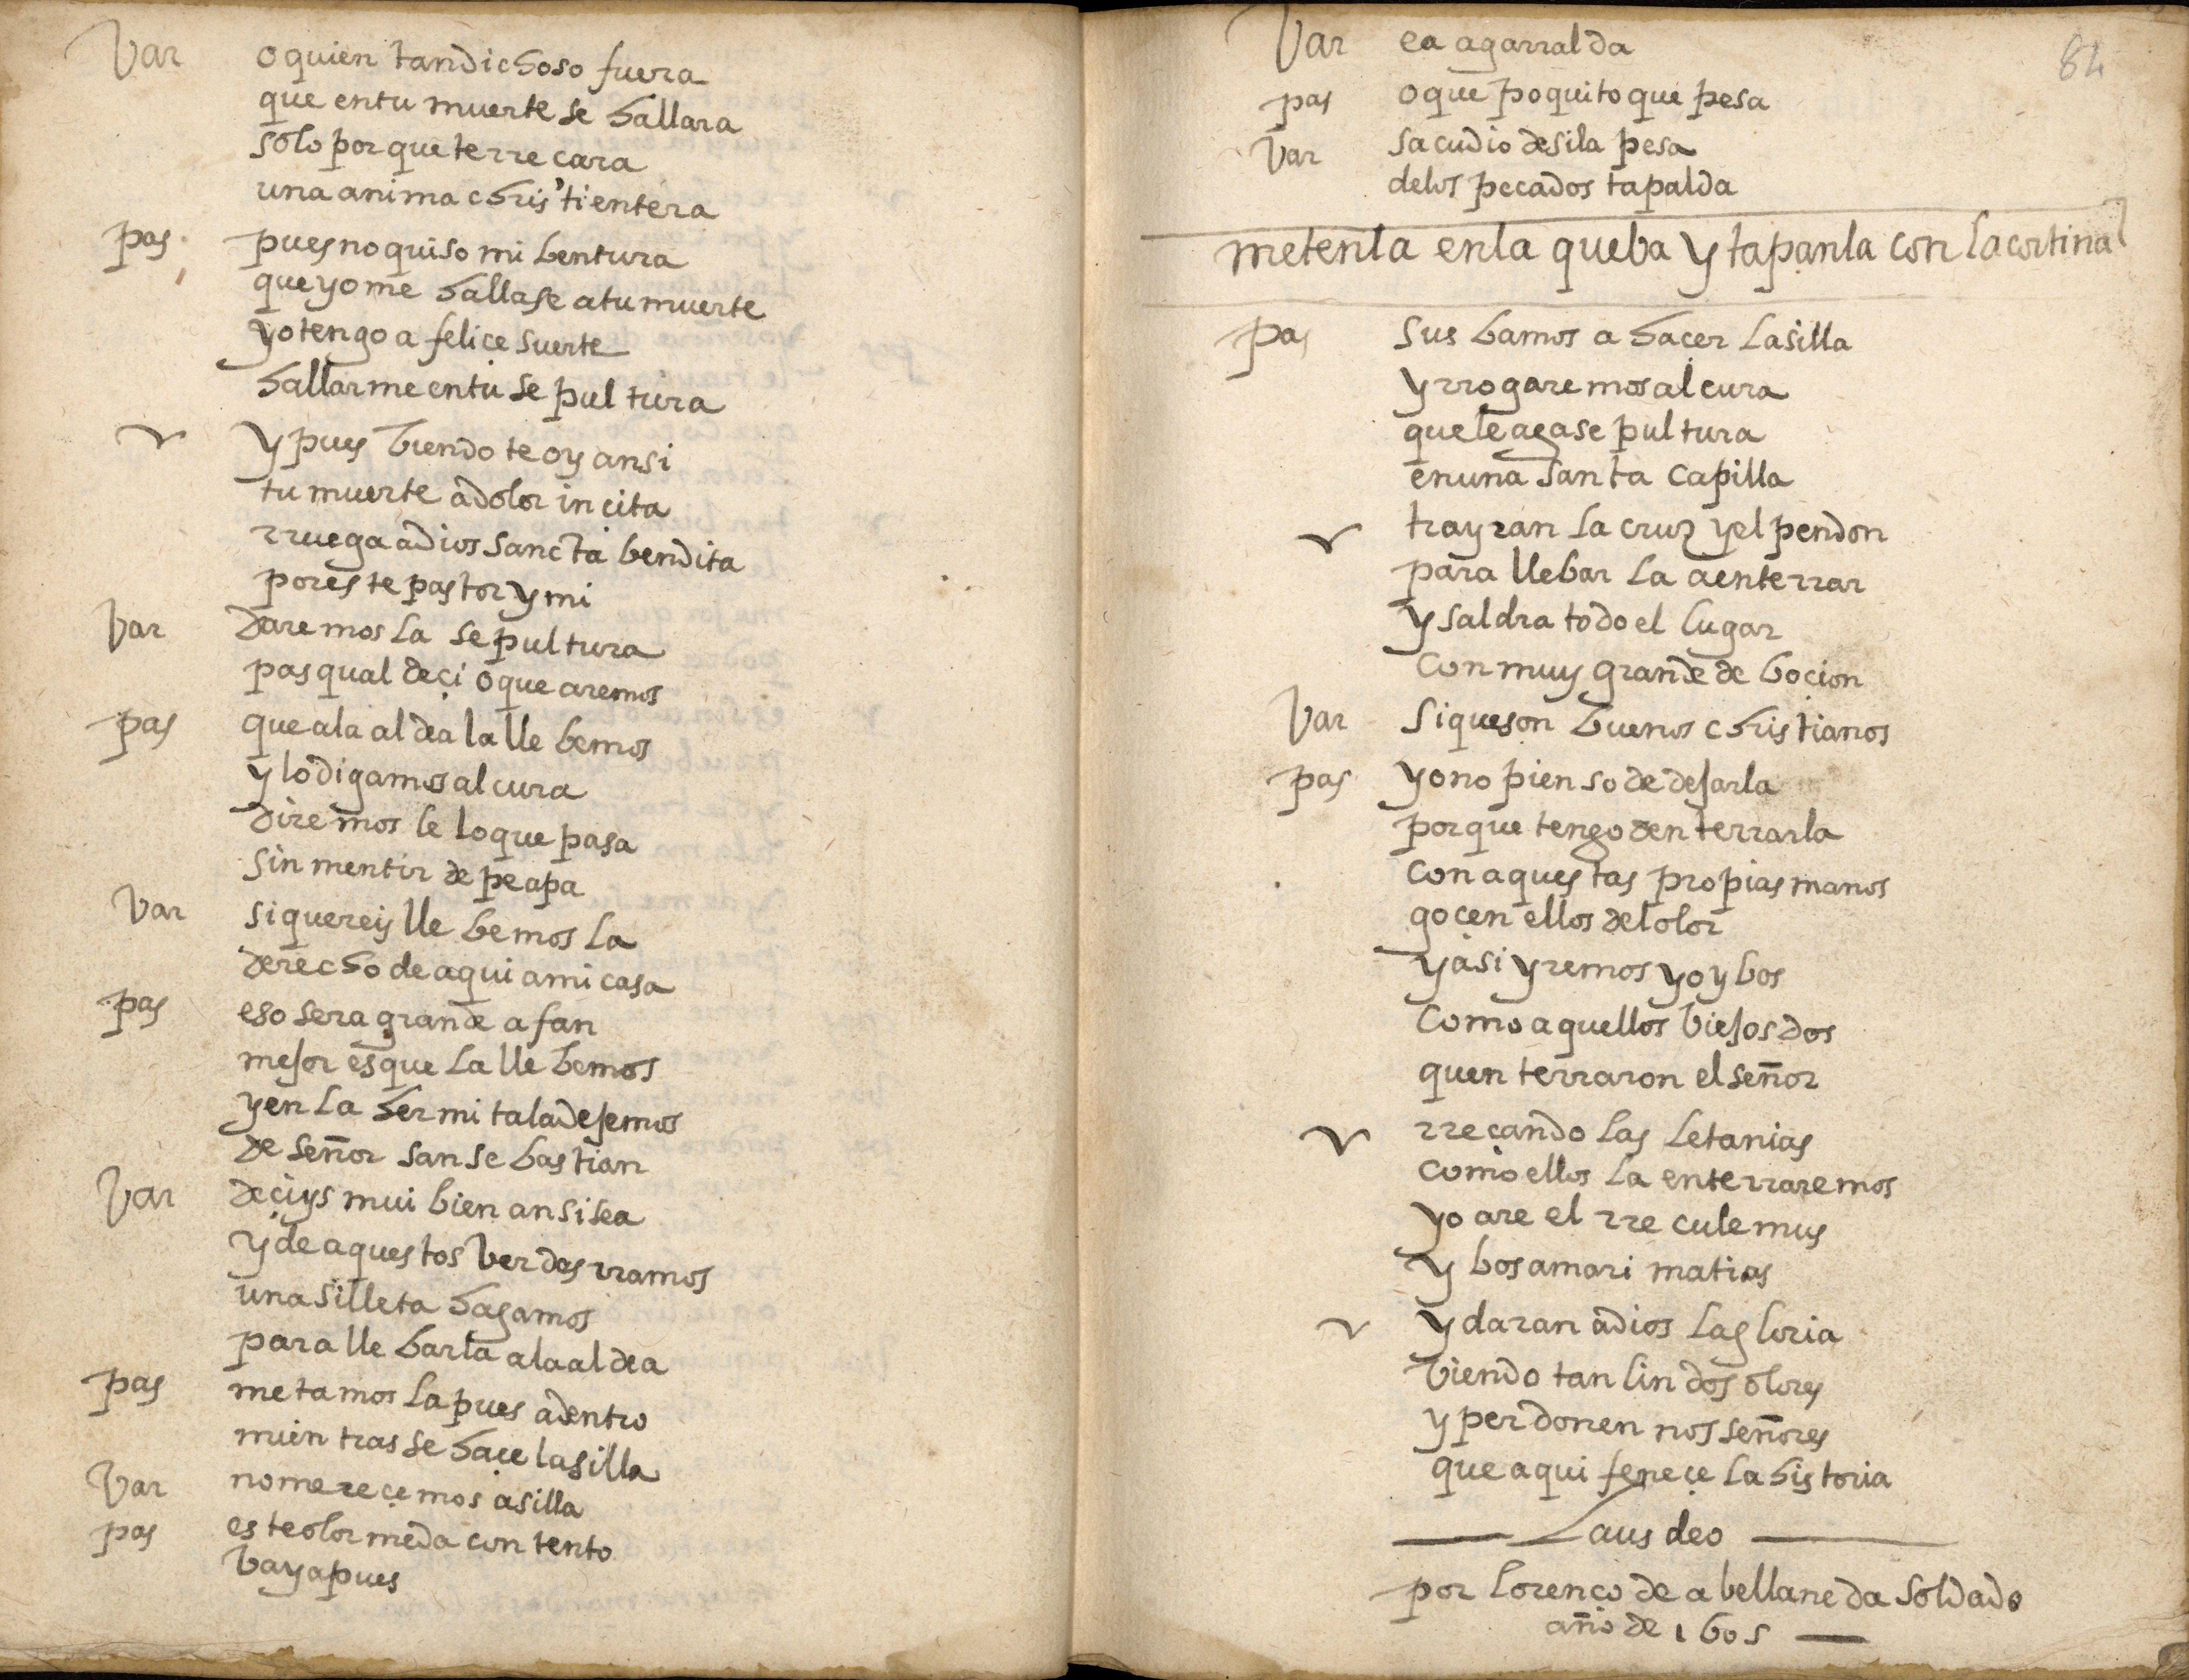 Var o quien tan dichoso fuera
que en tu muerte se hallara
solo porque te rrecara
una anima christi entera
pas pues no quiso mi bentura
que yo me hallase a tu muerte
yo tengo a felice suerte
hallarme en tu sepultura
y pues biendote oy ansi
tu muerte a dolor incita
rruega a dios sancta bendita
por este pastor y mi
Var daremosla sepultura
pasqual deçi o que aremos
pas que a la aldea la llebemos
y lo digamos al cura
diremosle lo que pasa
sin mentir de pe apa
Var si quereis llebemosla
derecho de aqui a mi casa
pas eso sera grande afan
mejor es que la llebemos
y en la hermita la dejemos
de señor san sebastian
Var deçiys mui bien ansi sea
y de aquestos berdes rramos
una silleta hagamos
para llebarla a la aldea
pas metamosla pues adentro
mientras se haçe la silla
Var no mereçemos asilla
pas este olor me da contento
baya pues
84
Var ea agarralda
pas o que poquito que pesa
Var sacudio de si la pesa
de los pecados tapalda
metenla en la queba y tapanla con la cortina
pas sus bamos a haçer la silla
y rrogaremos al cura
que le aga sepultura
en una santa capilla
trayran la cruz y el pendon
para llebarla a enterrar
y saldra todo el lugar
con muy grande deboçion
Var si que son buenos christianos
pas yo no pienso de dejarla
porque tengo denterrarla
con aquestas propias manos
gocen ellos del olor
y asi yremos yo y bos
como aquellos biejos dos
quenterraron el señor
rreçando las letanias
como ellos la enterraremos
yo are el rreculemus
y bos amari matias
y daran a dios la gloria
biendo tan lindos olores
y perdonen nos señores
que aqui feneçe la historia
Laus deo
por lorenço de abellaneda soldado
año de 1605